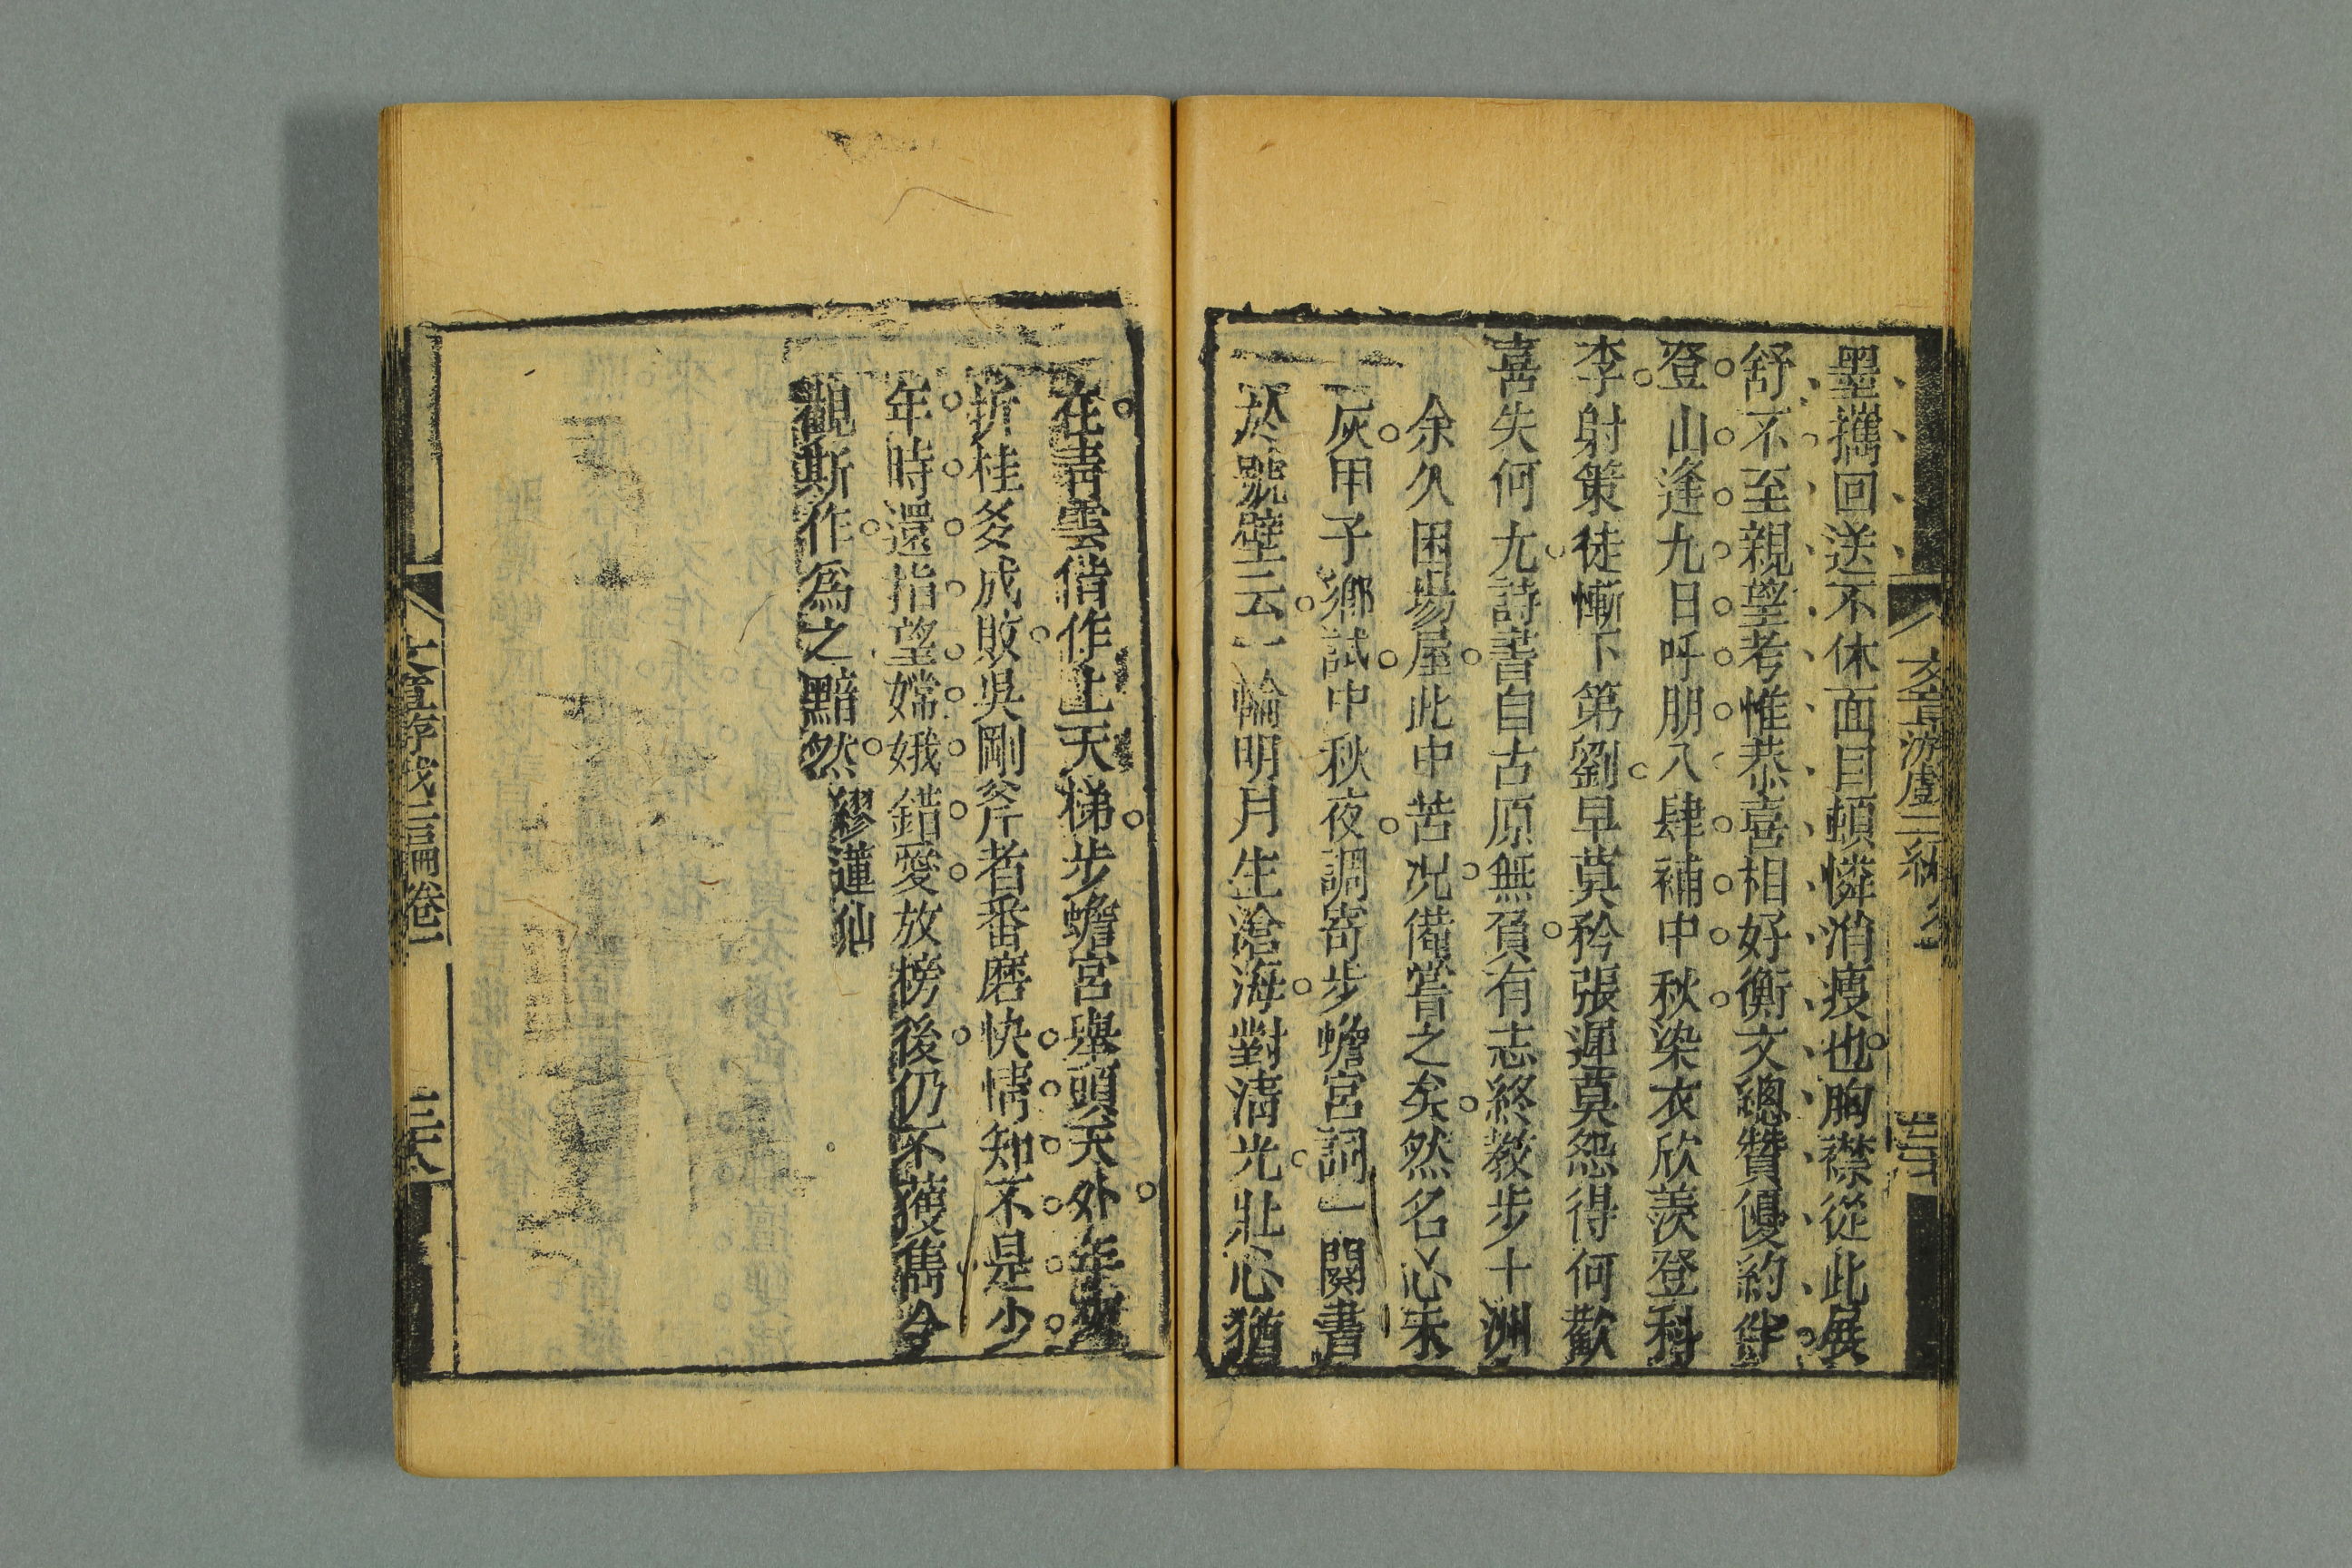 墨攜回送不休面目頓憐消瘦也胸襟從此展
舒不至親望考惟恭喜相好衡文總贊優約伴
登山逢九日呼朋入肆補中秋染衣欣羨登科
李射策徒慚下第劉早莫矜張遲莫怨得何歡
喜失何尤詩書自古原無負有志終教步十洲
余久困場屋此中苦况備嘗之矣然名心未
灰甲子鄉試中秋夜調寄步蟾宮詞一闋書
於號壁云一輪明月生滄海對清光壯心猶
在靑雲偕作上天梯步蟾宮舉頭天外年來
折桂多成敗吳剛斧者番磨快情知不是少
年時還指望嫦娥錯愛放榜後仍不獲雋今
觀斯作爲之黯然 繆蓮仙
文章游戲二編卷
文章游戲二編卷一
三六